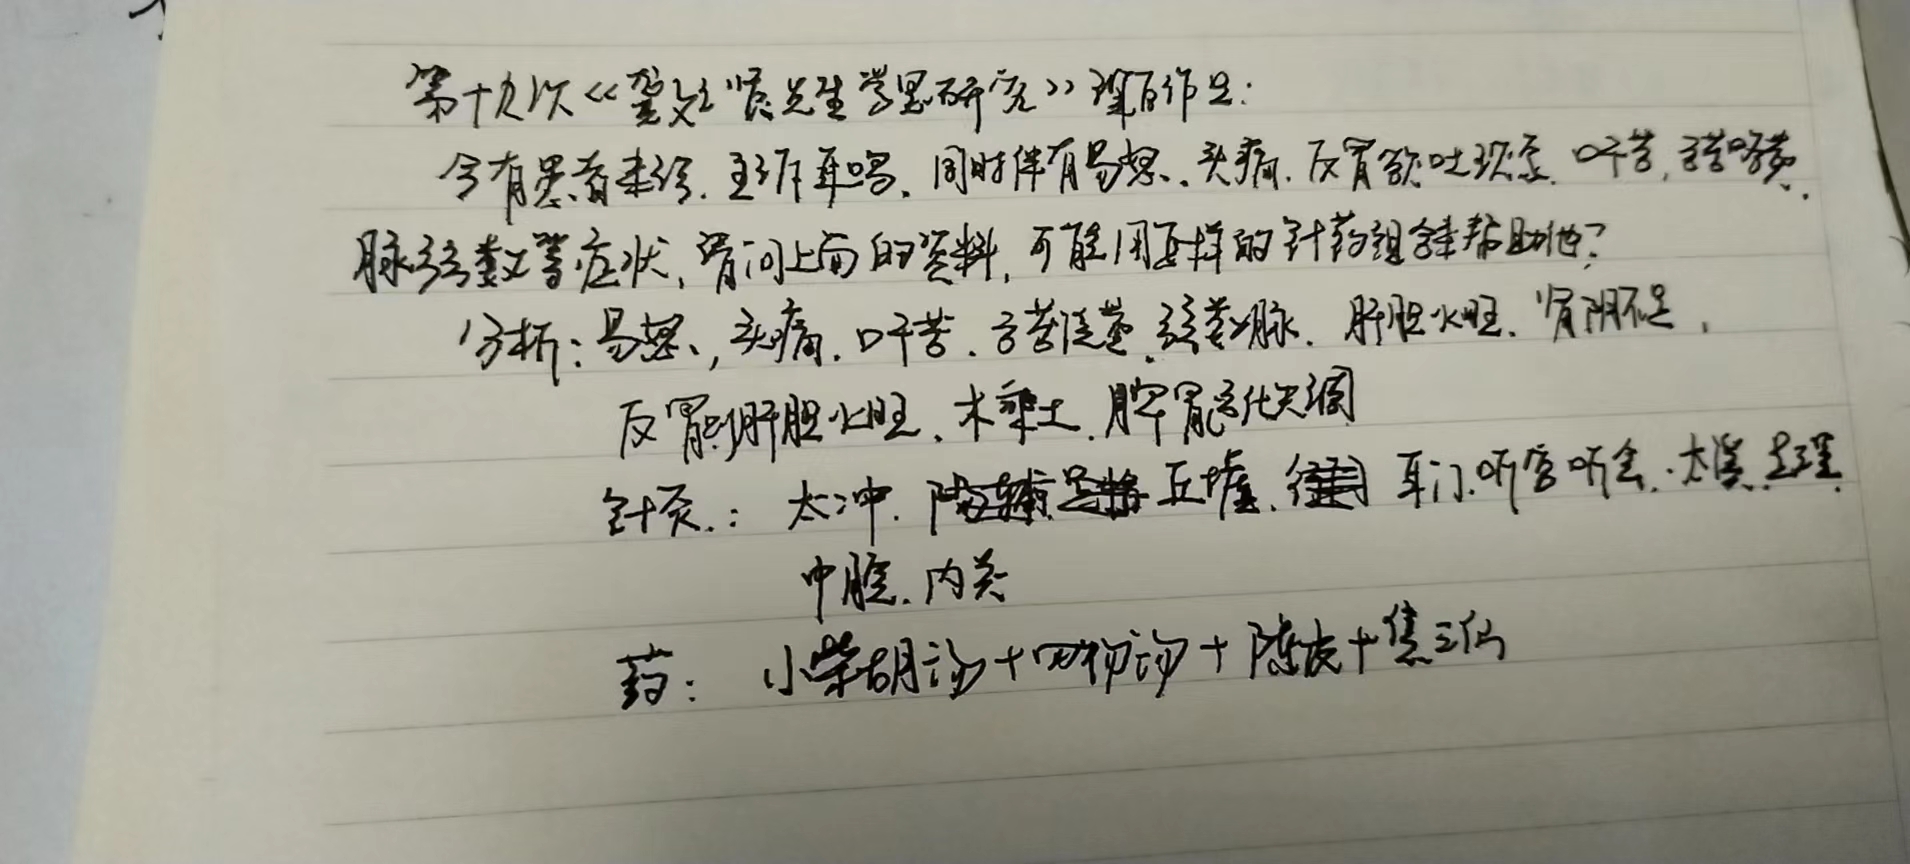 第十九次《龚文贤先生学思研究》课后作业:
今有患者来诊.主诉耳鸣,同时伴有易怒、头痛.反胃欲吐现象.口干苦,舌苔略黄.
脉弦数等症状,请问上面的资料,可能用怎样的针药组合来帮助他?
分析:易怒、,头痛.口干苦.舌苔黄.弦数脉.肝胆火旺.肾阴不足.
反胃:肝胆火旺.木乘土.脾胃运化失调
针灸.:太冲.丘墟.耳门.听宫听会.太溪.足三里.
中脘.内关
药:小柴胡汤+四物汤+陈皮+焦三仙